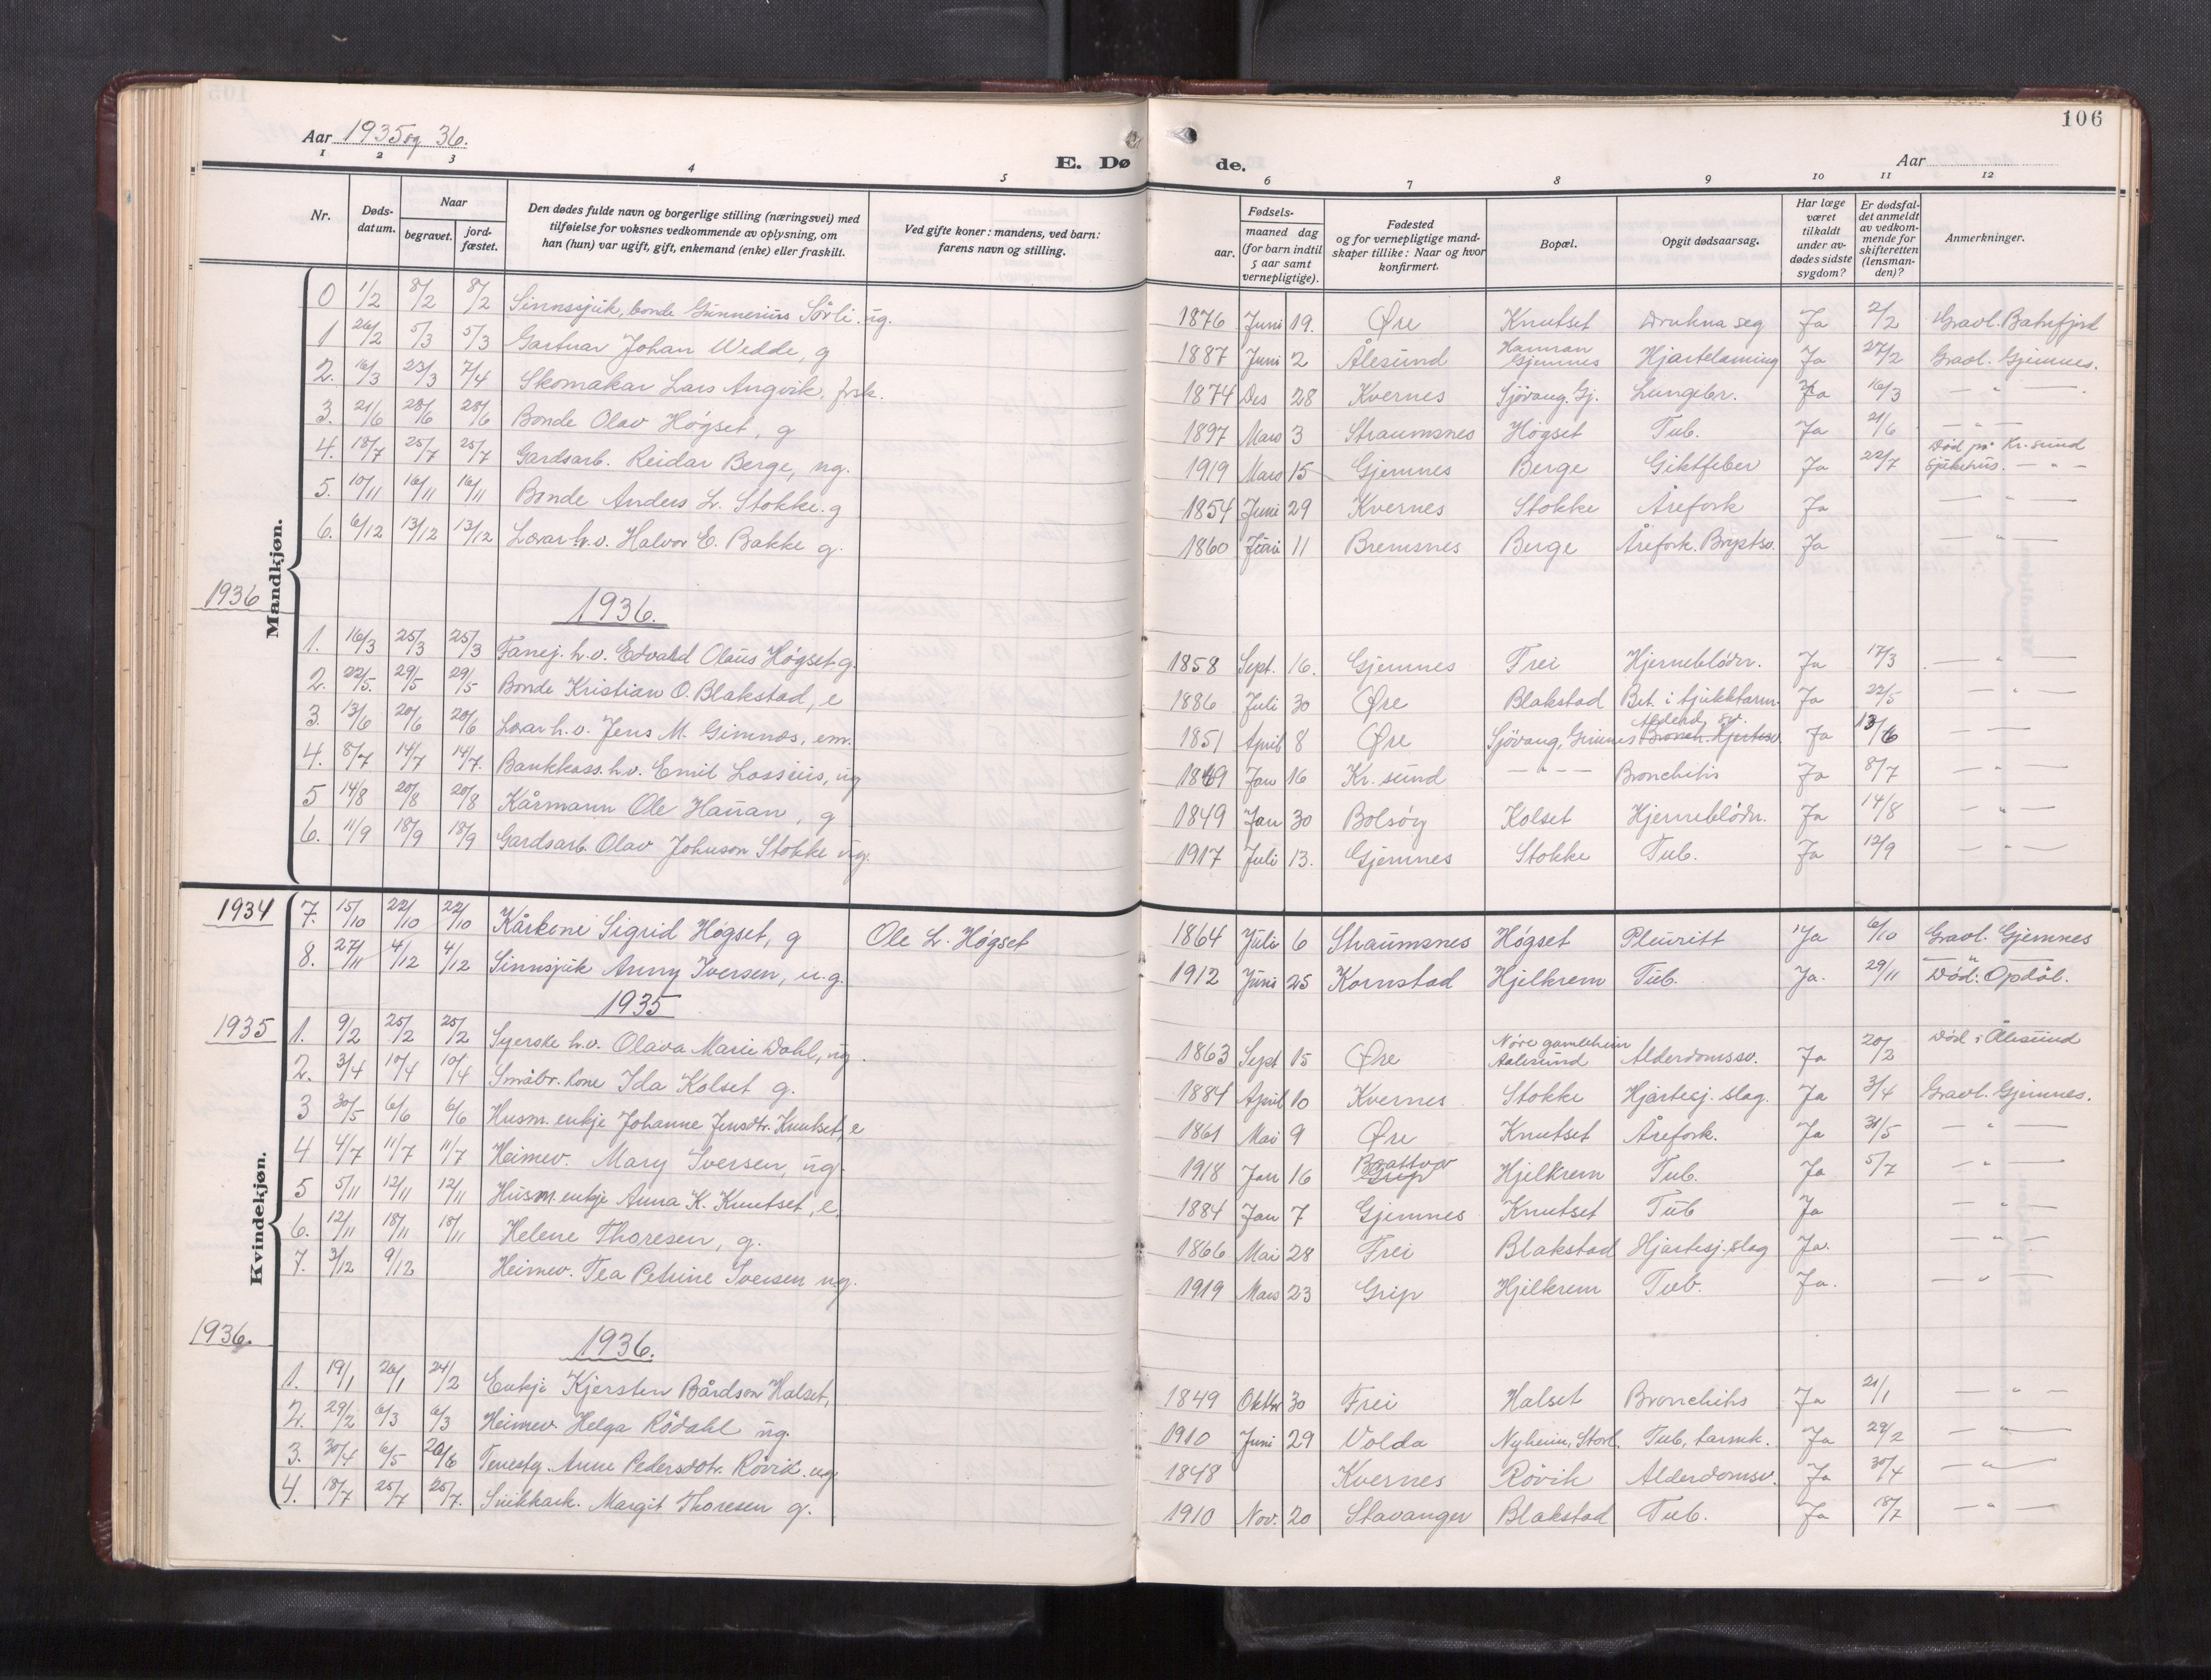 106
Aar 1935 og 36.
E. Døde.
Aar
1 2 3 4 5 6 7 8 9 10 11 12
Nr.
Døds-datum.
Naar
begravet.
jord-fæstet.
Den dødes fulde navn og borgerlige stilling (næringsvei) med tilføielse for voksnes vedkommende av oplysning, om han (hun) var ugift, gift, enkemand (enke) eller fraskilt.
Ved gifte koner: mandens, ved barn: farens navn og stilling.
Fødsels-
aar.
maaned dag
(for barn indtil 5 aar samt vernepligtige).
Fødested og for vernepligtige mand-skaper tillike: Naar og hvor konfirmert.
Bopæl.
Opgit dødsaarsag.
Har læge været tilkaldt under av-dødes sidste sygdom?
Er dødsfal-det anmeldt av vedkom-mende for skifteretten (lensman-den)?
Anmerkninger.
Mandkjøn.
0 1/2 8/2 8/2 Sinnssjuk, bonde Gunnerius Sørli. ug. 1876 Juni 19. Øre Knutset Drukna seg Ja 2/2 Gravl. Batnfjord
1 26/2 5/3 5/3 Gartnar Johan Wedde, g 1887 Juni 2 Ålesund Harran Gjemnes Hjartelaming Ja 27/2 Gravl. Gjemnes.
2. 16/3 23/3 7/4 Skomakar Lars Angvik, frsk. 1874 Des 28 Kvernes Sjövang, Gj. Lungebr. Ja 16/3 — " —
3. 21/6 28/6 28/6 Bonde Olav Högset, g 1897 Mars 3 Straumsnes Högset Tub. Ja 21/6 — " —
4. 18/7 25/7 25/7 Gardsarb. Reidar Berge, ug. 1919 Mars 15 Gjemnes Berge Giktfeber Ja 22/7 Död på Kr.sund Sjukehus. — " —
5. 10/11 16/11 16/11 Bonde Anders L. Stokke. g 1854 Juni 29 Kvernes Stokke Årefork Ja — " —
6. 6/12 13/12 13/12 Lovar h.v. Halvor E. Bakke g. 1860 Juni 11 Bremsnes Berge Årefork. Brystsv. Ja — " —
1936
1936.
1. 16/3 25/3 25/3 Fanej. h.v. Edvald Olaus Högset g. 1858 Sept. 16. Gjemnes Frei Hjerneblödn. Ja 17/3 — " —
2. 22/5. 29/5 29/5 Bonde Kristian O. Blakstad, e 1886 Juli 30 Øre Blakstad Bet. i tjukktarm. Ja 22/5 — " —
3. 13/6 20/6 20/6 Lovar h.v. Jens M. Gimnes, em. 1851 April 8 Øre Sjövang, Gimnes Alderd. sv. Bronch. Hjertesv. Ja 13/6 — " —
4. 8/7 14/7 14/7. Bankkass. h.v. Emil Lossius, ug 1849 Jan 16 Kr.sund — " — Bronchitis Ja 8/7 — " —
5 14/8 20/8 20/8 Kårmann Ole Hanan, g 1849 Jan 30 Bolsöy Kolset Hjerneblödn. Ja 14/8 — " —
6. 11/9 18/9 18/9 Gardsarb. Olav Johnson Stokke ug. 1917 Juli 13. Gjemnes Stokke Tub. Ja 12/9 — " —
Kvindekjøn.
1934
7. 15/10 22/10 22/10 Kårkone Sigrid Högset, g Ole L. Högset 1864 Juli 6 Straumsnes Högset Pleuritt Ja 6/10 Gravl. Gjemnes
8. 27/11 4/12 4/12 Sinnsjuk Anny Iversen, u.g. 1912 Juni 25 Kornstad Hjelkrem Tub. Ja. 29/11 — " — Död: Opdöl.
1935
1935
1. 9/2 25/2 25/2 Syerske h.v. Olava Marie Dahl, ug. 1863 Sept 15 Øre Nöre gamleheim Aalesund Alderdomssv. Ja 20/2 Död i Ålesund
2. 3/4 10/4 10/4 Småbr. kone Ida Kolset g. 1884 April 10 Kvernes Stokke Hjartesj. slag. Ja 3/4 Gravl. Gjemnes.
3 30/5 6/6 6/6 Husm. enkje Johanne Jensdtr. Knutset, e 1861 Mai 9 Øre Knutset Årefork. Ja 31/5 — " —
4 4/7 11/7 11/7 Heimev. Mary Iversen, ug. 1918 Jan 16 Brattvær Grip Hjelkrem Tub. Ja 5/7 — " —
5 5/11 12/11 12/11 Husm. enkje Anna K. Knutset, e. 1884 Jan 7 Gjemnes Knutset Tub Ja — " —
6. 12/11 18/11 18/11 Helene Thoresen, g. 1866 Mai 28 Frei Blakstad Hjartesj. slag Ja. — " —
7. 3/12 9/12 Heimev. Tea Petrine Iversen ug. 1919 Mars 23 Grip Hjelkrem Tub. Ja. — " —
1936.
1936.
1. 19/1 26/1 24/2 Enkje Kjersten Bårdson Halset, 1849 Oktbr 30 Frei Halset Bronchitis Ja 21/1 — " —
2. 29/2 6/3 6/3 Heimev. Helga Rödahl ug. 1910 Juni 29 Volda Nyheim, Storl. Tub, tarmk. Ja 29/2 — " —
3. 30/4 6/5 20/6 Tenestg. Anne Pedersdotr. Rövik. ug. 1848 Kvernes Rövik Alderdomsv. Ja 30/4 — " —
4. 18/7 25/7 25/7. Snikkark. Margit Thoresen g. 1910 Nov. 20 Stavanger Blakstad Tub. Ja 18/7 — " —